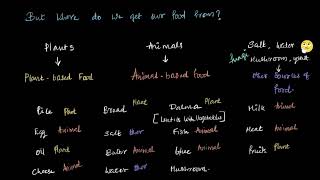 But where do we get our food from?
Plants
Animals
Salt, water
fungi Mushroom, yeast
Plant-based Food
Animal-based food
Other sources of Food.
Rice Plant
Bread Plant
Dalma Plant
[Lentils with Vegetables]
Milk Animal
Egg Animal
Salt Other
Fish Animal
Meat Animal
Oil Plant
Water Other
Fruit Plant
Cheese Animal
Mushroom